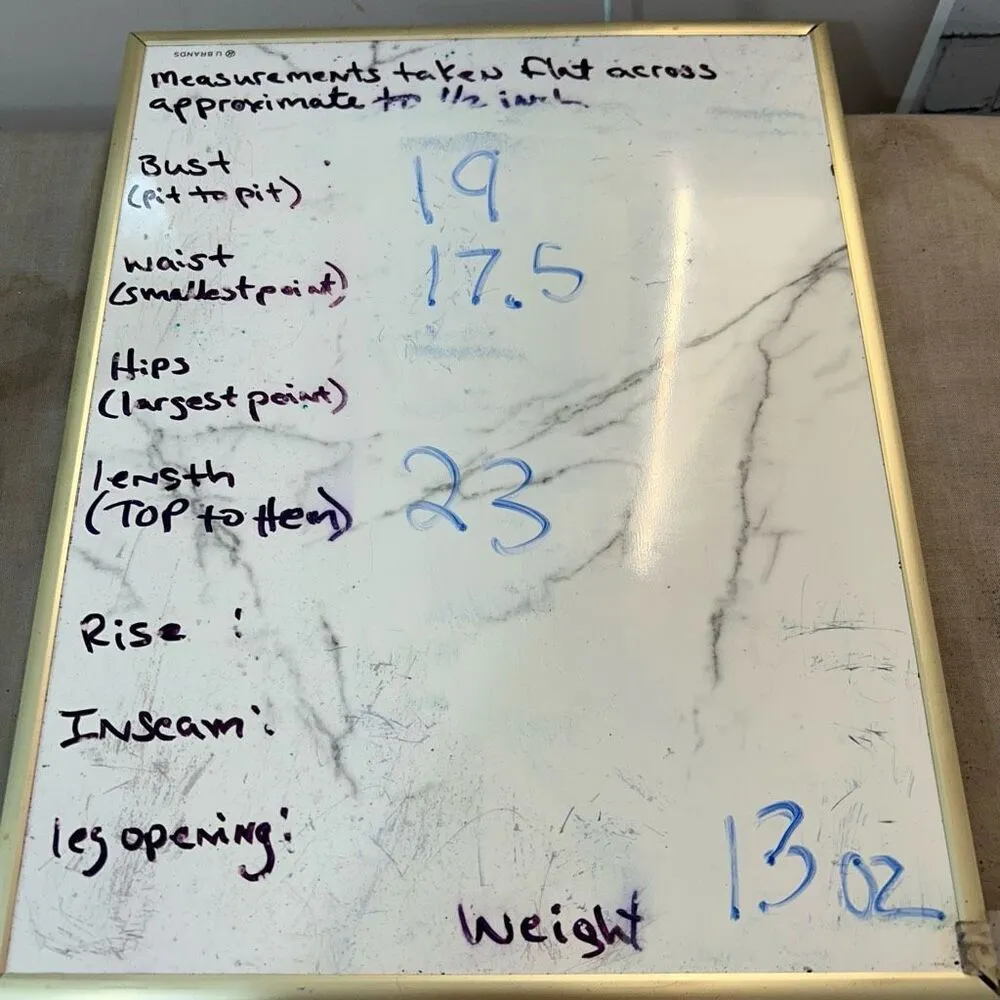 U BRANDS
measurements taken flat across
approximate to 1/2 inch
Bust : 19
(pit to pit)
waist 17.5
(smallest point)
Hips
(largest point)
length 23
(TOP to Hem)
Rise :
Inseam :
leg opening :
13 oz
Weight